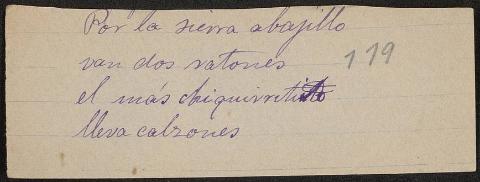 Por la sierra abajillo
van dos ratones 119
el más chiquirritito
lleva calzones